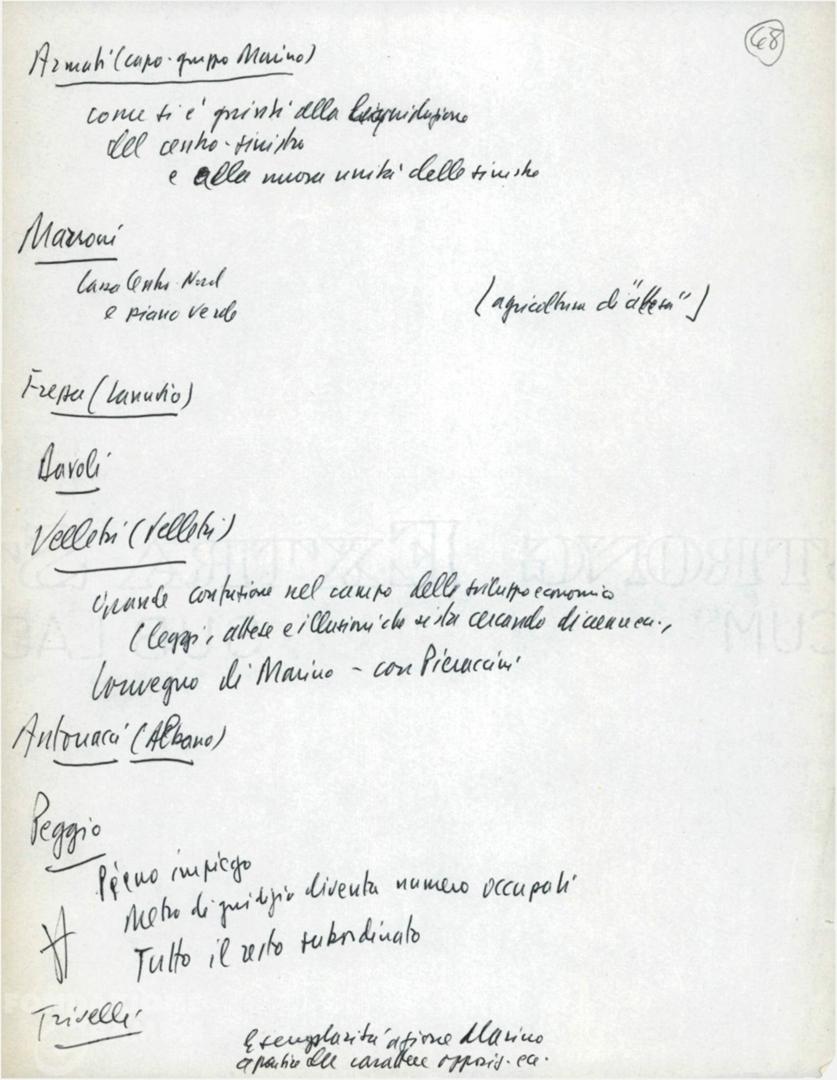 68
Armati (capo-gruppo Marino)
come si è giunti alla liquidazione
del centro-sinistra
e alla nuova unità delle sinistre
Marroni
Cassa Centro-Nord
e piano verde
(agricoltura di "attesa")
(Lanuvio)
Velletri (Velletri)
Grande confusione nel campo dello sviluppo economico
(leggi, attese e illusioni che si sta cercando di
Convegno di Marino - con Pieraccini
Antonacci (Albano)
Peggio
Pieno impiego
Metro di giudizio diventa numero occupati
Tutto il resto subordinato
Trivelli
Esemplarità azione Marino
carattere